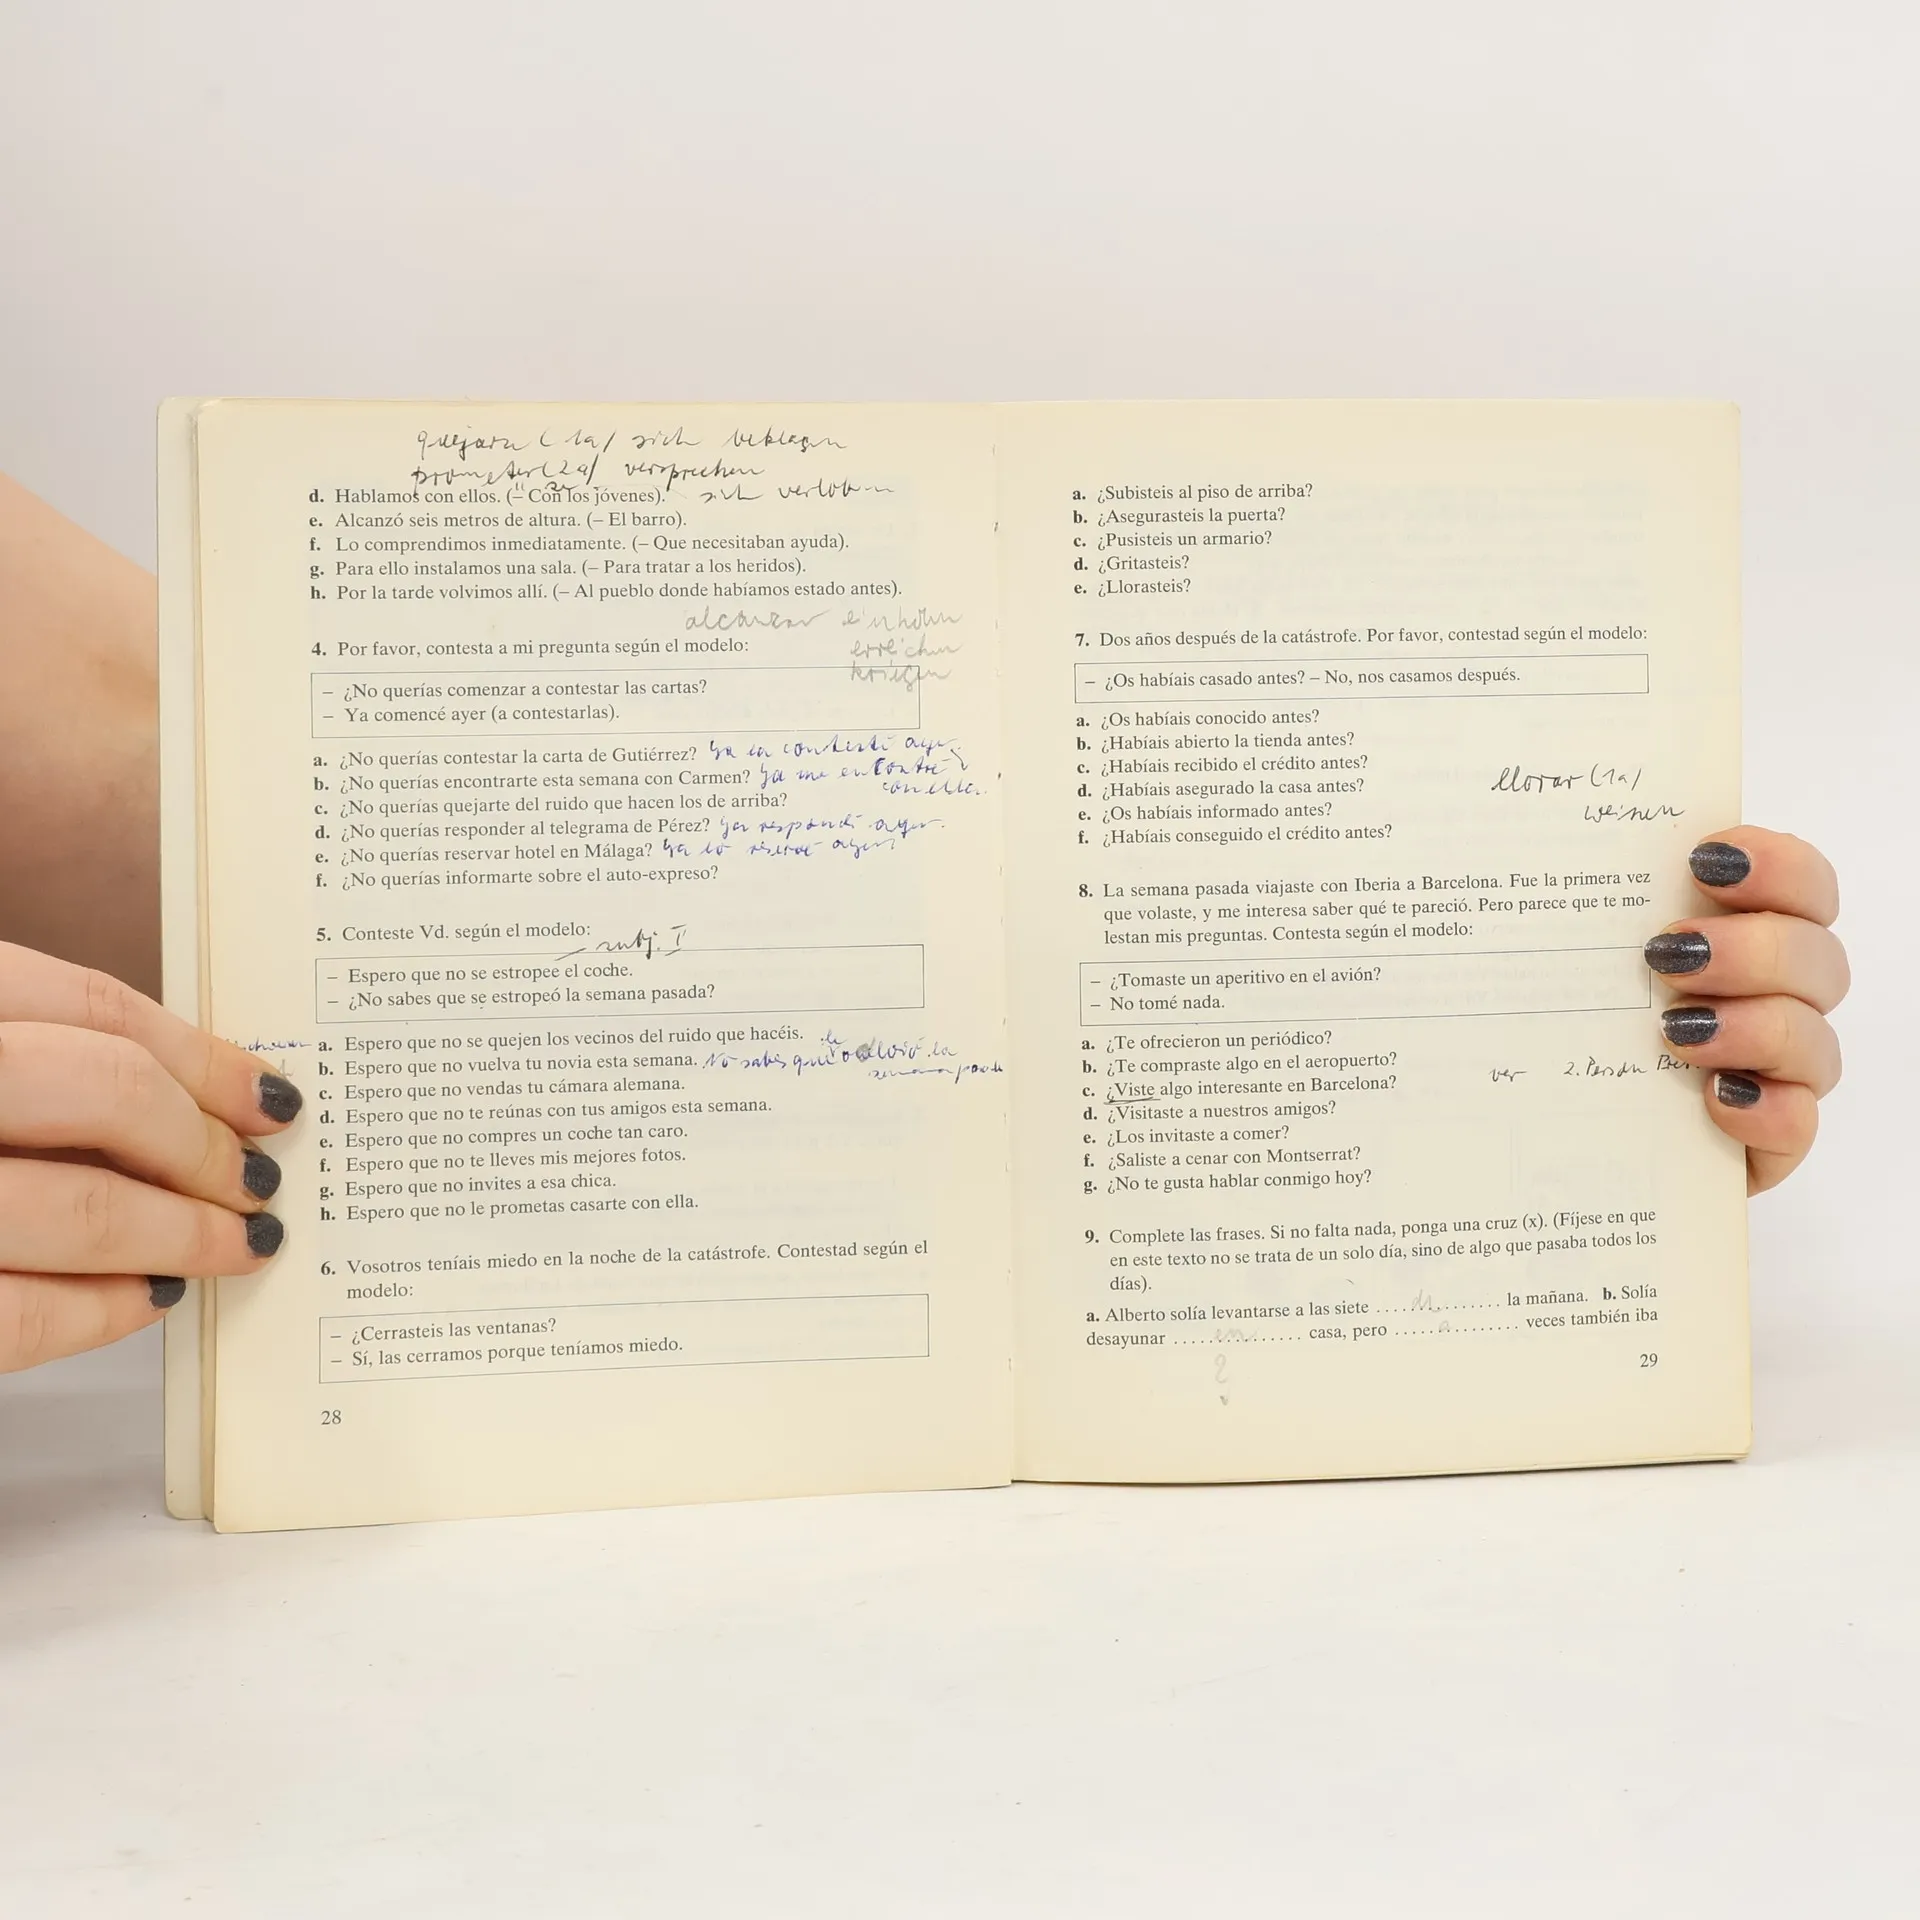 quejarse (1a) sich beklagen
prometer (2a) versprechen
d. Hablamos con ellos. (– Con los jóvenes). sich verloben
e. Alcanzó seis metros de altura. (– El barro).
f. Lo comprendimos inmediatamente. (– Que necesitaban ayuda).
g. Para ello instalamos una sala. (– Para tratar a los heridos).
h. Por la tarde volvimos allí. (– Al pueblo donde habíamos estado antes).
alcanzar einholen
4. Por favor, contesta a mi pregunta según el modelo: erreichen
kriegen
– ¿No querías comenzar a contestar las cartas?
– Ya comencé ayer (a contestarlas).
a. ¿No querías contestar la carta de Gutiérrez? Ya la contesté ayer.
b. ¿No querías encontrarte esta semana con Carmen? Ya me encontré
con ella.
c. ¿No querías quejarte del ruido que hacen los de arriba?
d. ¿No querías responder al telegrama de Pérez? Ya respondí ayer.
e. ¿No querías reservar hotel en Málaga? Ya lo reservé ayer.
f. ¿No querías informarte sobre el auto-expreso?
5. Conteste Vd. según el modelo:
subj. I
– Espero que no se estropee el coche.
– ¿No sabes que se estropeó la semana pasada?
a. Espero que no se quejen los vecinos del ruido que hacéis.
b. Espero que no vuelva tu novia esta semana. No sabes que volvió la
semana pasada
c. Espero que no vendas tu cámara alemana.
d. Espero que no te reúnas con tus amigos esta semana.
e. Espero que no compres un coche tan caro.
f. Espero que no te lleves mis mejores fotos.
g. Espero que no invites a esa chica.
h. Espero que no le prometas casarte con ella.
6. Vosotros teníais miedo en la noche de la catástrofe. Contestad según el
modelo:
– ¿Cerrasteis las ventanas?
– Sí, las cerramos porque teníamos miedo.
28
a. ¿Subisteis al piso de arriba?
b. ¿Asegurasteis la puerta?
c. ¿Pusisteis un armario?
d. ¿Gritasteis?
e. ¿Llorasteis?
7. Dos años después de la catástrofe. Por favor, contestad según el modelo:
– ¿Os habíais casado antes? – No, nos casamos después.
a. ¿Os habíais conocido antes?
b. ¿Habíais abierto la tienda antes?
c. ¿Habíais recibido el crédito antes?
d. ¿Habíais asegurado la casa antes? llorar (1a)
e. ¿Os habíais informado antes? weinen
f. ¿Habíais conseguido el crédito antes?
8. La semana pasada viajaste con Iberia a Barcelona. Fue la primera vez
que volaste, y me interesa saber qué te pareció. Pero parece que te mo-
lestan mis preguntas. Contesta según el modelo:
– ¿Tomaste un aperitivo en el avión?
– No tomé nada.
a. ¿Te ofrecieron un periódico?
b. ¿Te compraste algo en el aeropuerto?
c. ¿Viste algo interesante en Barcelona? ver 2. Person
d. ¿Visitaste a nuestros amigos?
e. ¿Los invitaste a comer?
f. ¿Saliste a cenar con Montserrat?
g. ¿No te gusta hablar conmigo hoy?
9. Complete las frases. Si no falta nada, ponga una cruz (x). (Fíjese en que
en este texto no se trata de un solo día, sino de algo que pasaba todos los
días).
a. Alberto solía levantarse a las siete .... de .... la mañana. b. Solía
desayunar .... en .... casa, pero .... a .... veces también iba
29